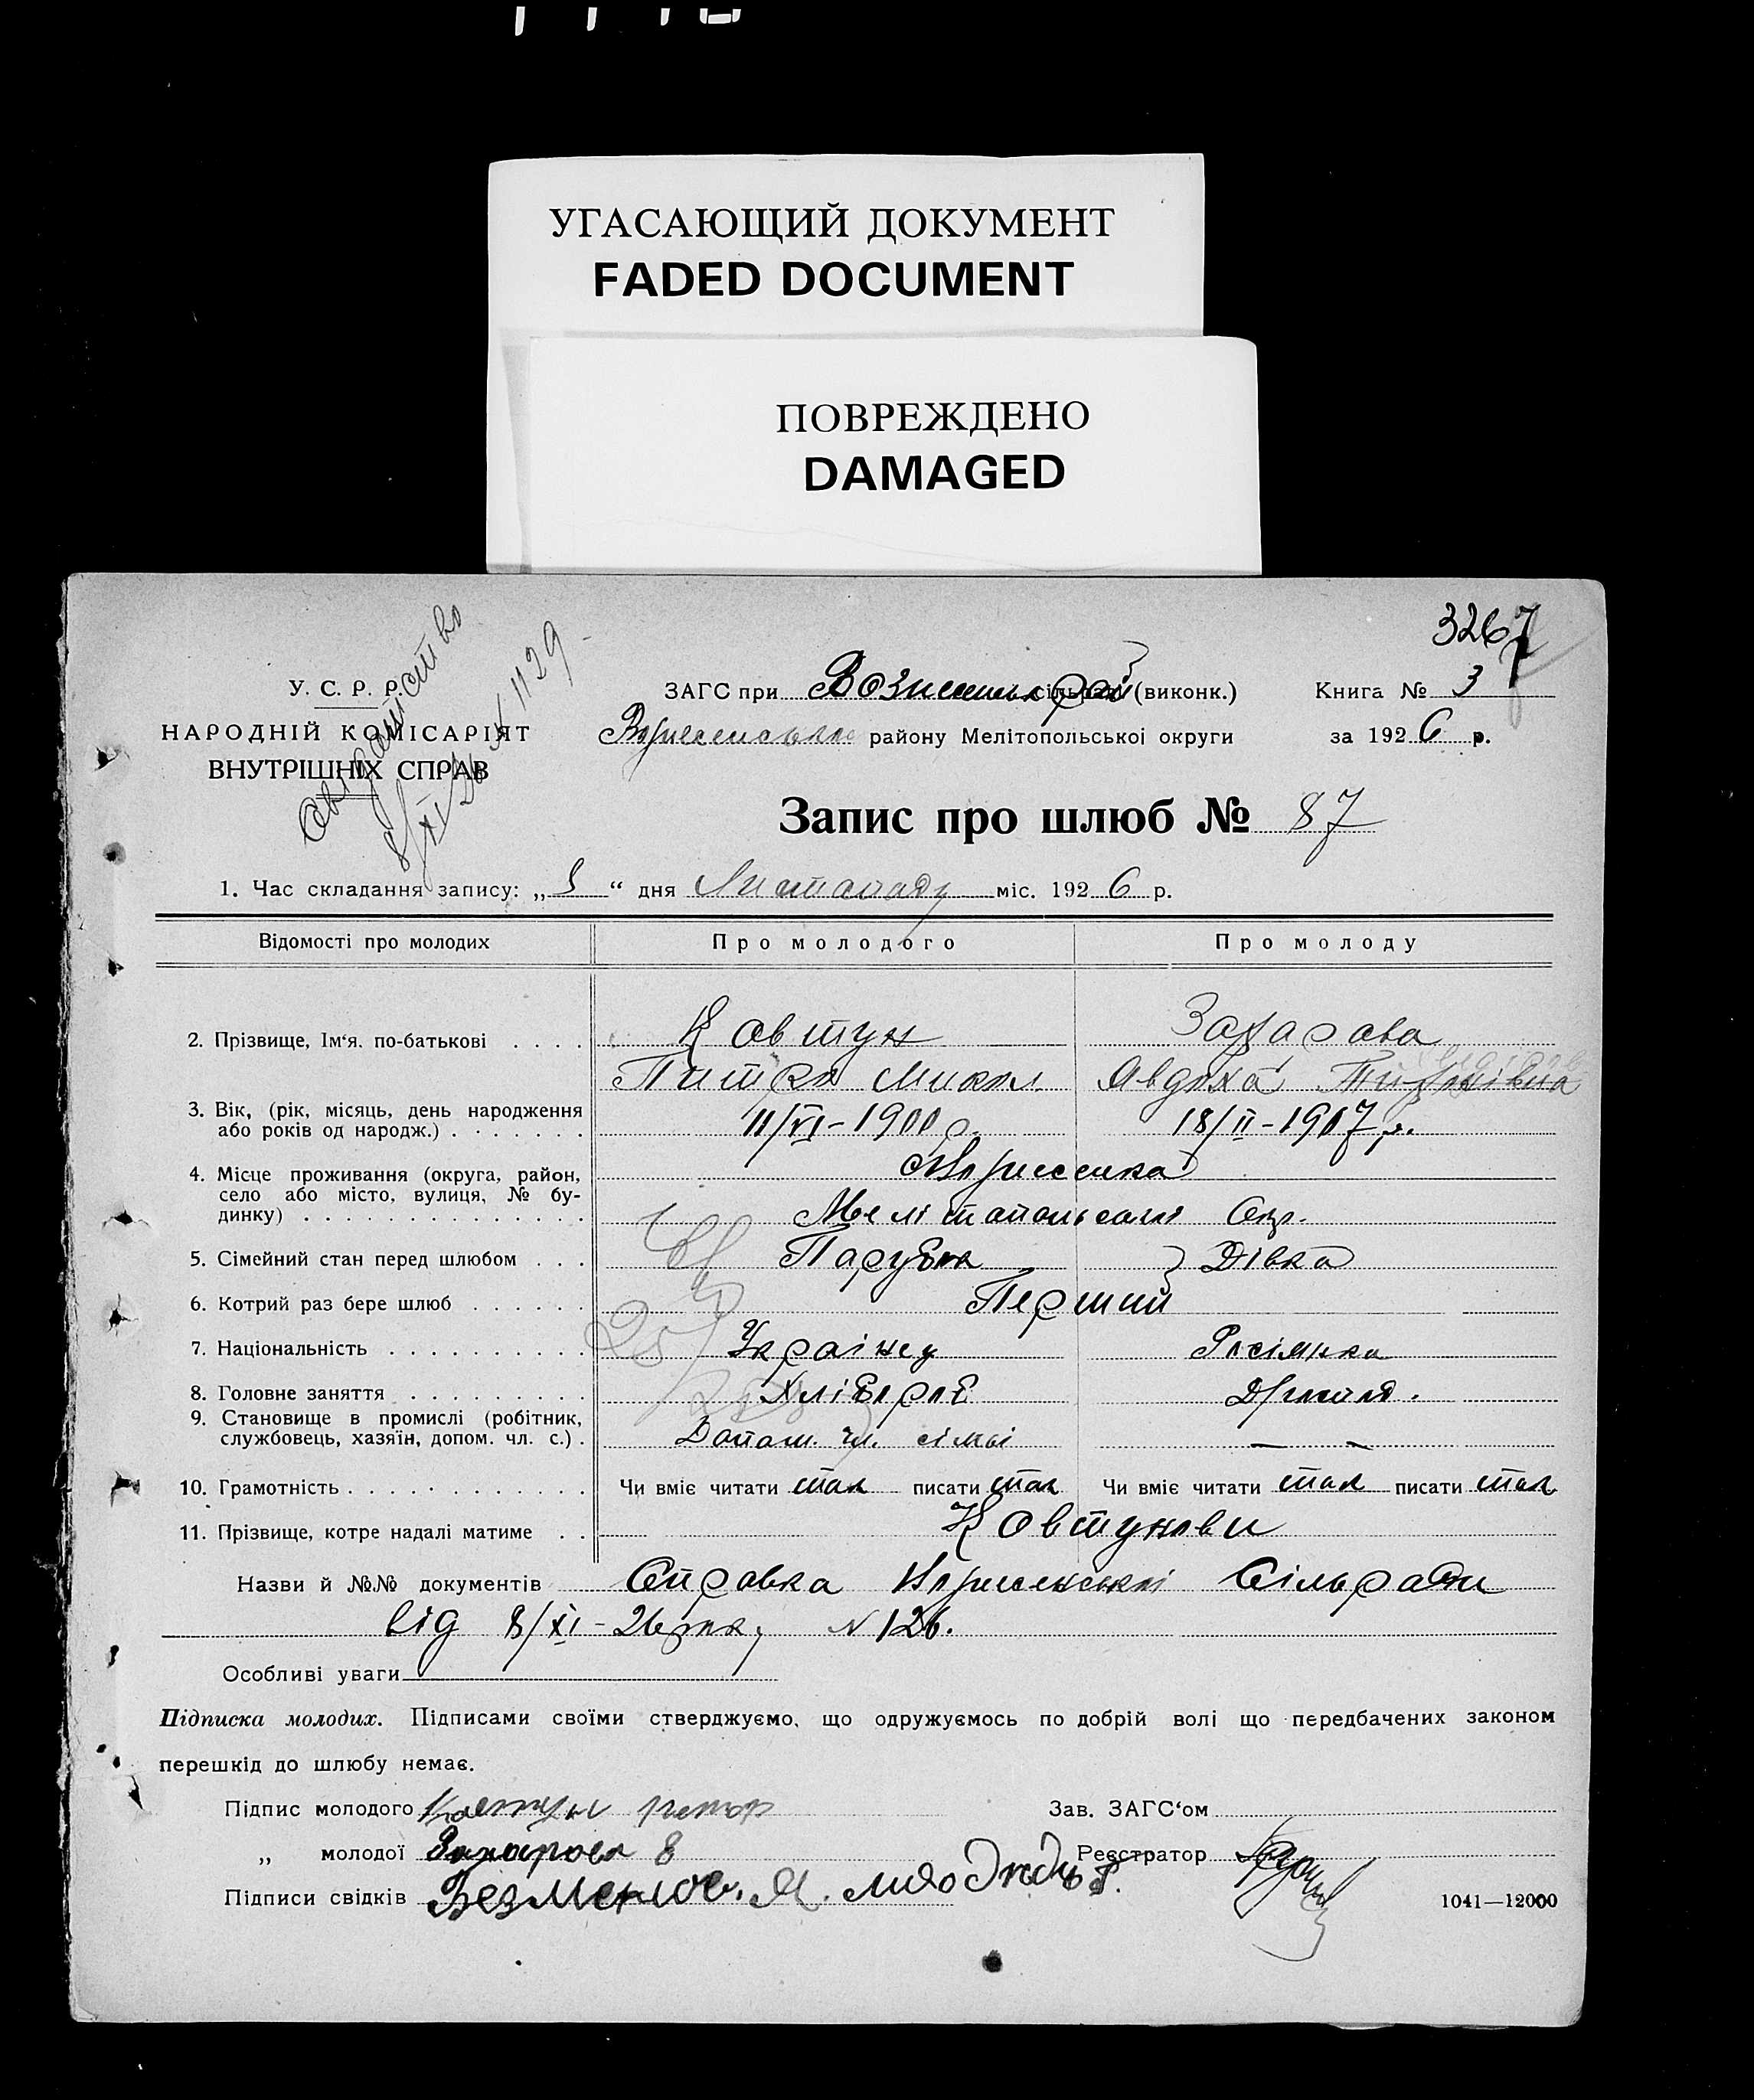 УГАСАЮЩИЙ ДОКУМЕНТ
FADED DOCUMENT
ПОВРЕЖДЕНО
DAMAGED
3267
У. С. Р. Р.
НАРОДНІЙ КОМІСАРІЯТ
ВНУТРІШНІХ СПРАВ
№ 1129
ЗАГС при (виконк.)
Книга № 3
району Мелітопольської округи
за 1926 р.
Запис про шлюб № 87
1. Час складання запису: „ “ дня Листопаду міс. 1926 р.
Відомості про молодих
Про молодого
Про молоду
2. Прізвище, Ім‘я. по-батькові . . . .
Ковтун
Захарова
Микол.
Явдоха
3. Вік, (рік, місяць, день народження
або років од народж.) . . . . . . .
11/VI-1900 р.
18/II-1907 р.
4. Місце проживання (округа, район,
село або місто, вулиця, № бу-
динку) . . . . . . . . . . . . . .
Окр.
5. Сімейний стан перед шлюбом . . .
Парубок
Дівка
6. Котрий раз бере шлюб . . . . . .
Перший
7. Національність . . . . . . . . . .
Українец
Росіянка
8. Головне заняття . . . . . . . . .
Хлібороб
9. Становище в промислі (робітник,
службовець, хазяїн, допом. чл. с.) .
Допом. чл. сімьі
10. Грамотність . . . . . . . . . . . .
Чи вміє читати так писати так
Чи вміє читати так писати так
11. Прізвище, котре надалі матиме . .
Ковтунови
Назви й №№ документів Справка Сільради
від 8/XI-26 року N 126.
Особливі уваги
Підписка молодих. Підписами своїми стверджуємо, що одружуємось по добрій волі що передбачених законом
перешкід до шлюбу немає.
Підпис молодого Ковтун
Зав. ЗАГС‘ом
„ молодої Захарова Е
Реєстратор
Підписи свідків
1041—12000